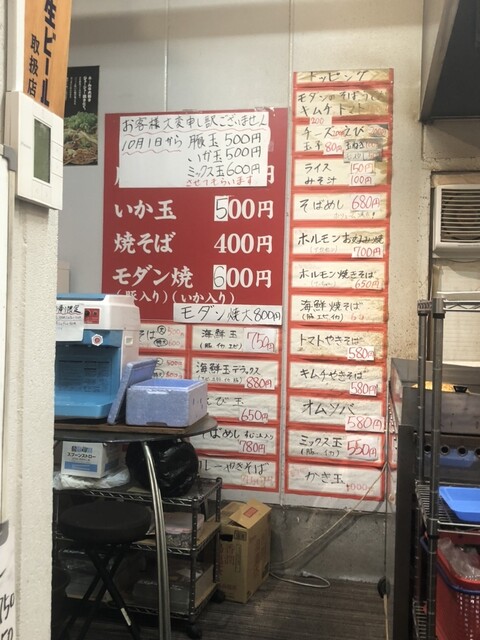 生ビール
取扱店
お客様 大変申し訳ございません
10月1日から 豚玉500円
いか玉500円
ミックス玉600円
させてもらいます
いか玉 500円
焼そば 400円
モダン焼 600円
(豚入り)(いか入り)
モダン焼大800円
海鮮玉 750円
海鮮玉デラックス
880円
650円
780円
やきそば
トッピング
モダンのそば
キムチ トマト
200
チーズ えび
玉子 80円
ライス 150円
みそ汁 100円
そばめし 680円
ホルモンお好み焼
700円
ホルモン焼きそば
650円
海鮮焼そば
トマトやきそば
580円
キムチやきそば
580円
オムソバ
580円
ミックス玉 550円
かき玉